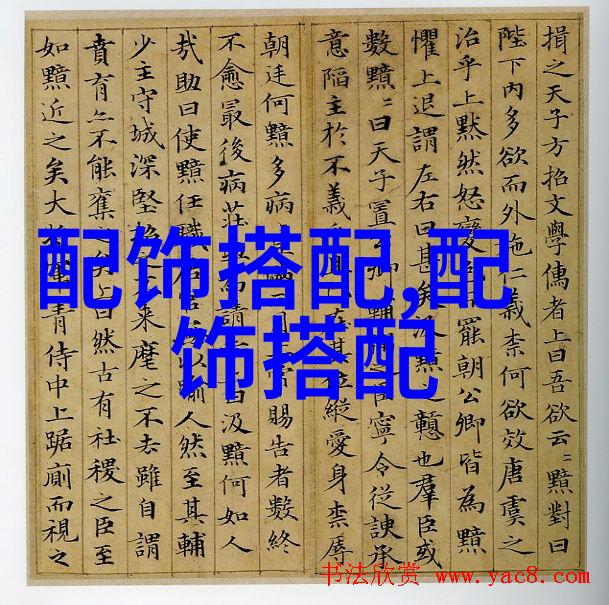 損之天子方招文學儒者上曰吾欲云〻黯對曰
陛下內多欲而外施仁義柰何欲效唐虞之
治乎上默然怒變罷朝公卿皆為黯
懼上退謂左右曰甚矣汲黯之戇也羣臣或
數黯〻曰天子置卿輔臣寧令從諛承
意陷主於不義且在其位縱愛身柰辱
朝廷何黯多病滿三月常賜告者數終
不愈最後病莊為請曰汲黯何如人
㢤助曰使黯任職居官以踰人然至其輔
少主守城深堅招來麾之不去雖自謂
賁育亦不能奪之矣上曰然古有社稷之臣至
如黯近之矣大將軍青侍中上踞廁而視之
配饰搭配,配
饰搭配
书法欣赏 www.yac8.com